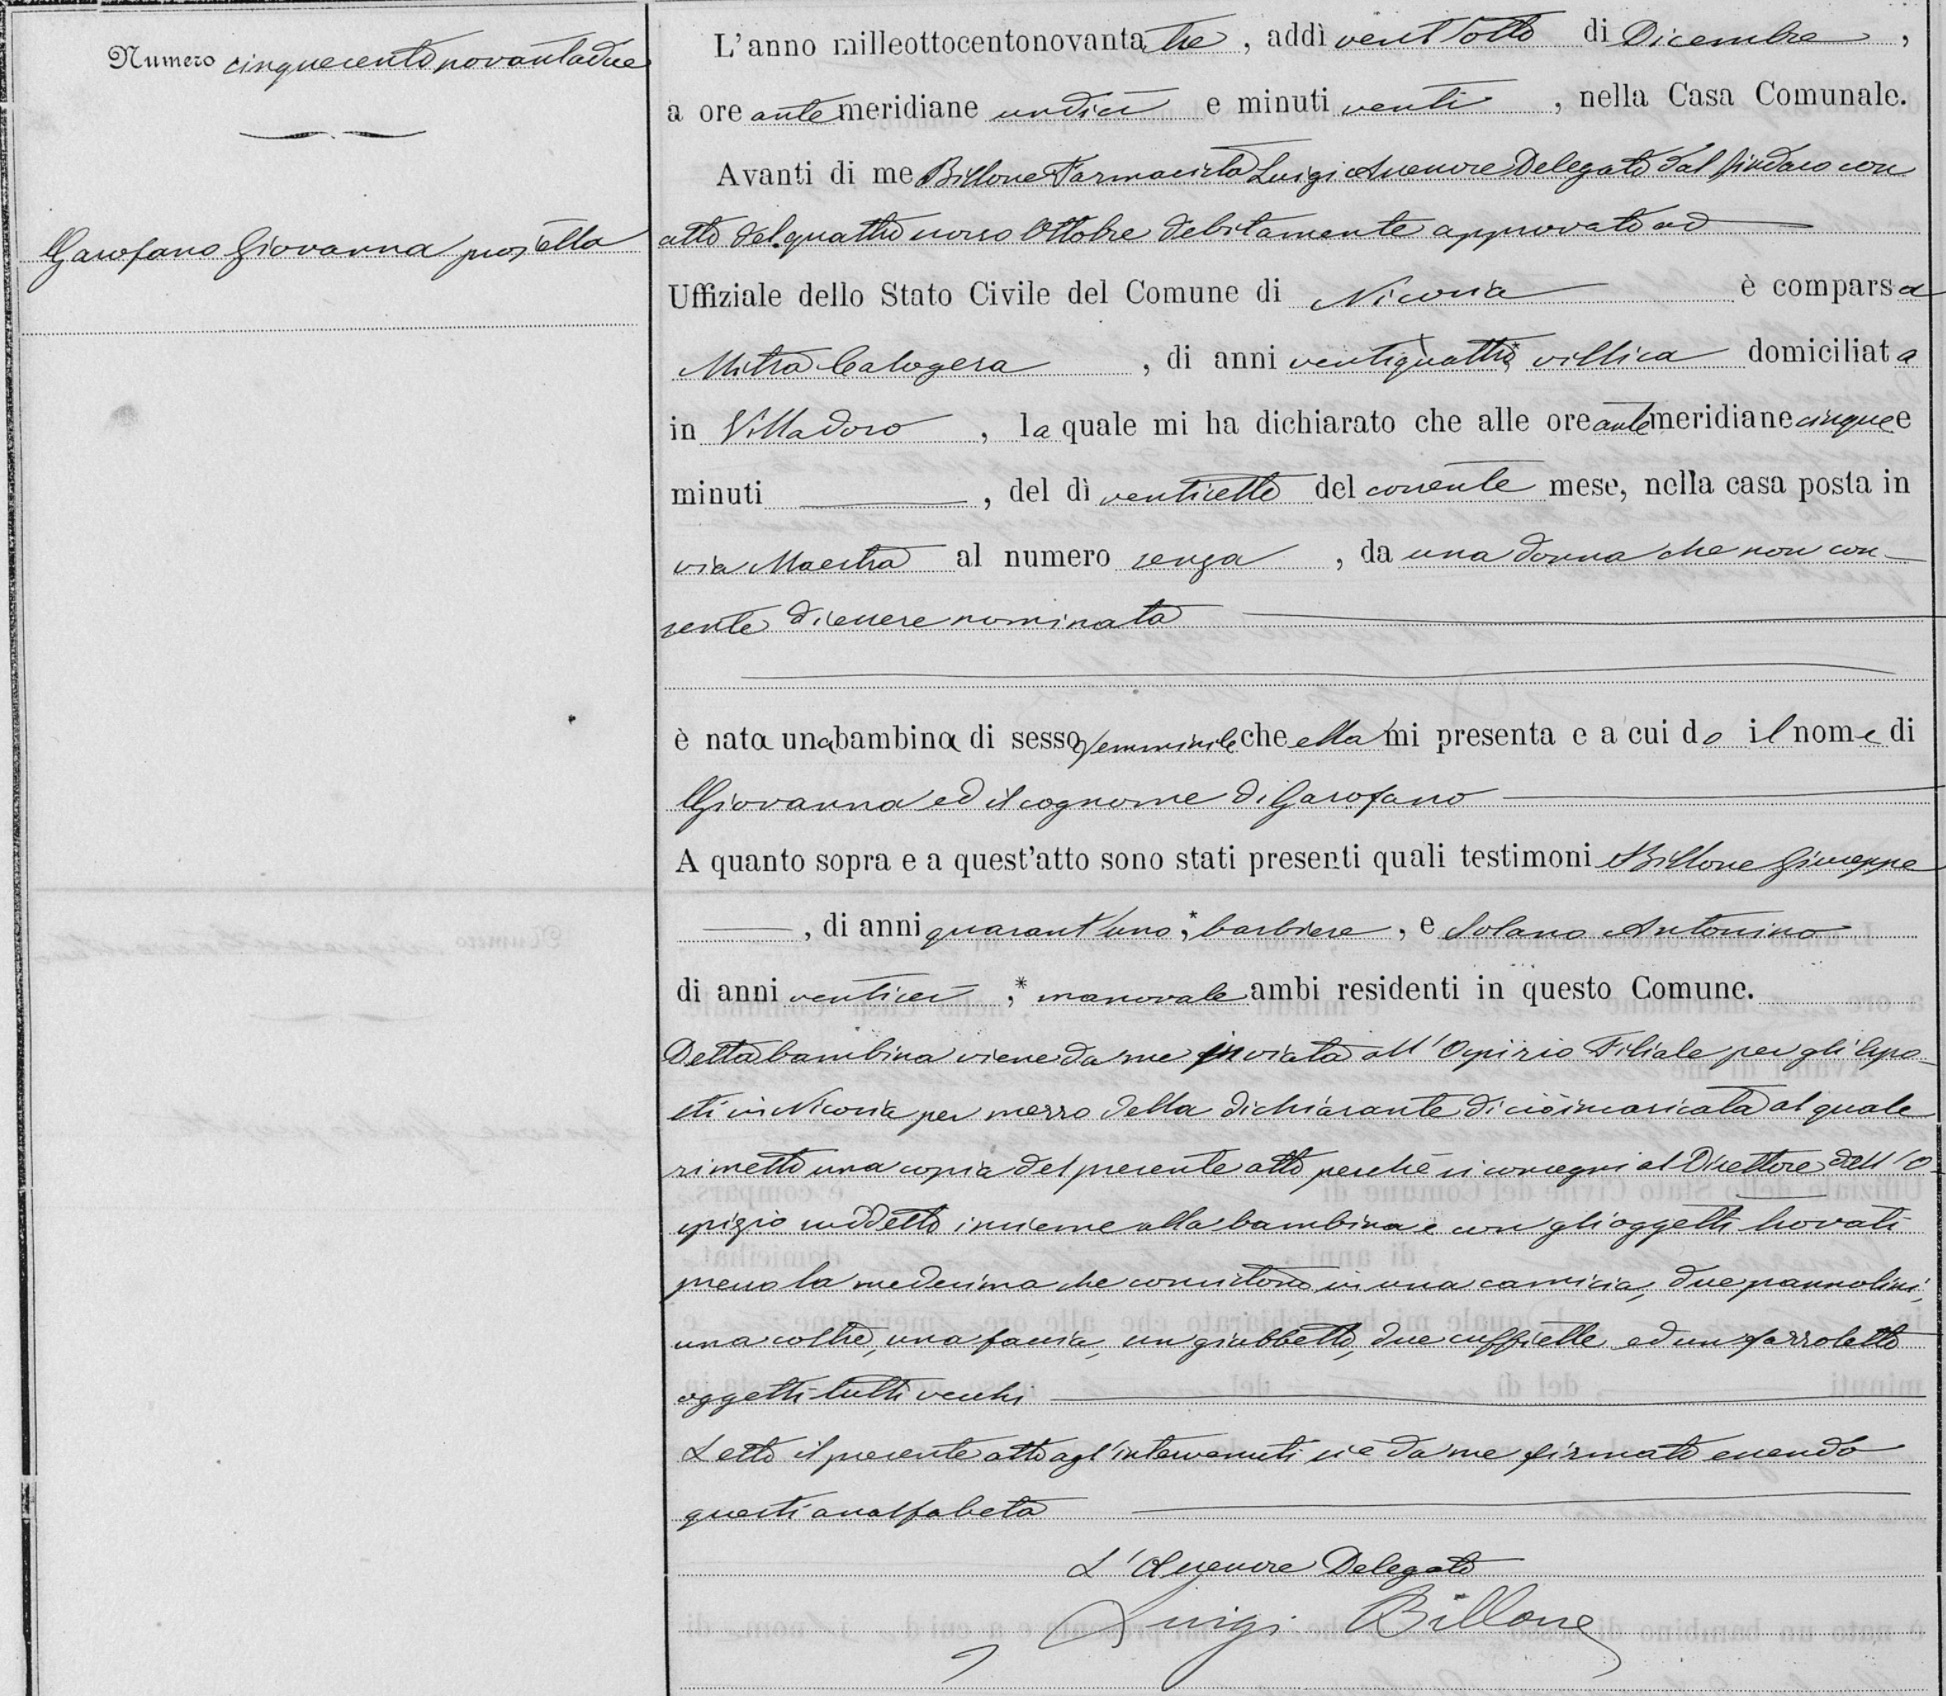 Numero cinquecentonovantadue
Garofano Giovanna projetta
L'anno milleottocentonovantatre, addì vent'otto di Dicembre,
a ore antemeridiane undici e minuti venti, nella Casa Comunale.
Avanti di me Billone Farmacista Luigi Assessore Delegato dal Sindaco con
atto del quattro scorso Ottobre debitamente approvato ad
Uffiziale dello Stato Civile del Comune di Nicosia è comparsa
Mitra Calogera, di anni ventiquattro* villica domiciliata
in Villadoro, la quale mi ha dichiarato che alle ore antemeridiane cinque e
minuti, del dì venticette del corrente mese, nella casa posta in
via Maestra al numero senza, da una donna che non con-
sente di essere nominata
è nata una bambina di sesso femminile che ella mi presenta e a cui do il nome di
Giovanna ed il cognome di Garofano
A quanto sopra e a quest'atto sono stati presenti quali testimoni Billone Giuseppe
, di anni quarant'uno,* barbiere, e Solano Antonino
di anni venticei,* manovale ambi residenti in questo Comune.
Detta bambina viene da me inviata all'Ospizio Filiale per gli Espo-
sti in Nicosia per mezzo della dichiarante di ciò incaricata al quale
rimetto una copia del presente atto perchè si consegni al Direttore dell'O-
spizio suddetto insieme alla bambina e con gli oggetti trovati
presso la medesima che consistono in una camicia, due pannolini,
una coltre, una fascia, un giubbetto, due cuffiette ed un fazzoletto
oggetti tutti vecchi
Letto il presente atto agl'intervenuti si è da me firmato essendo
questi analfabeta
L'Assessore Delegato
Luigi Billone